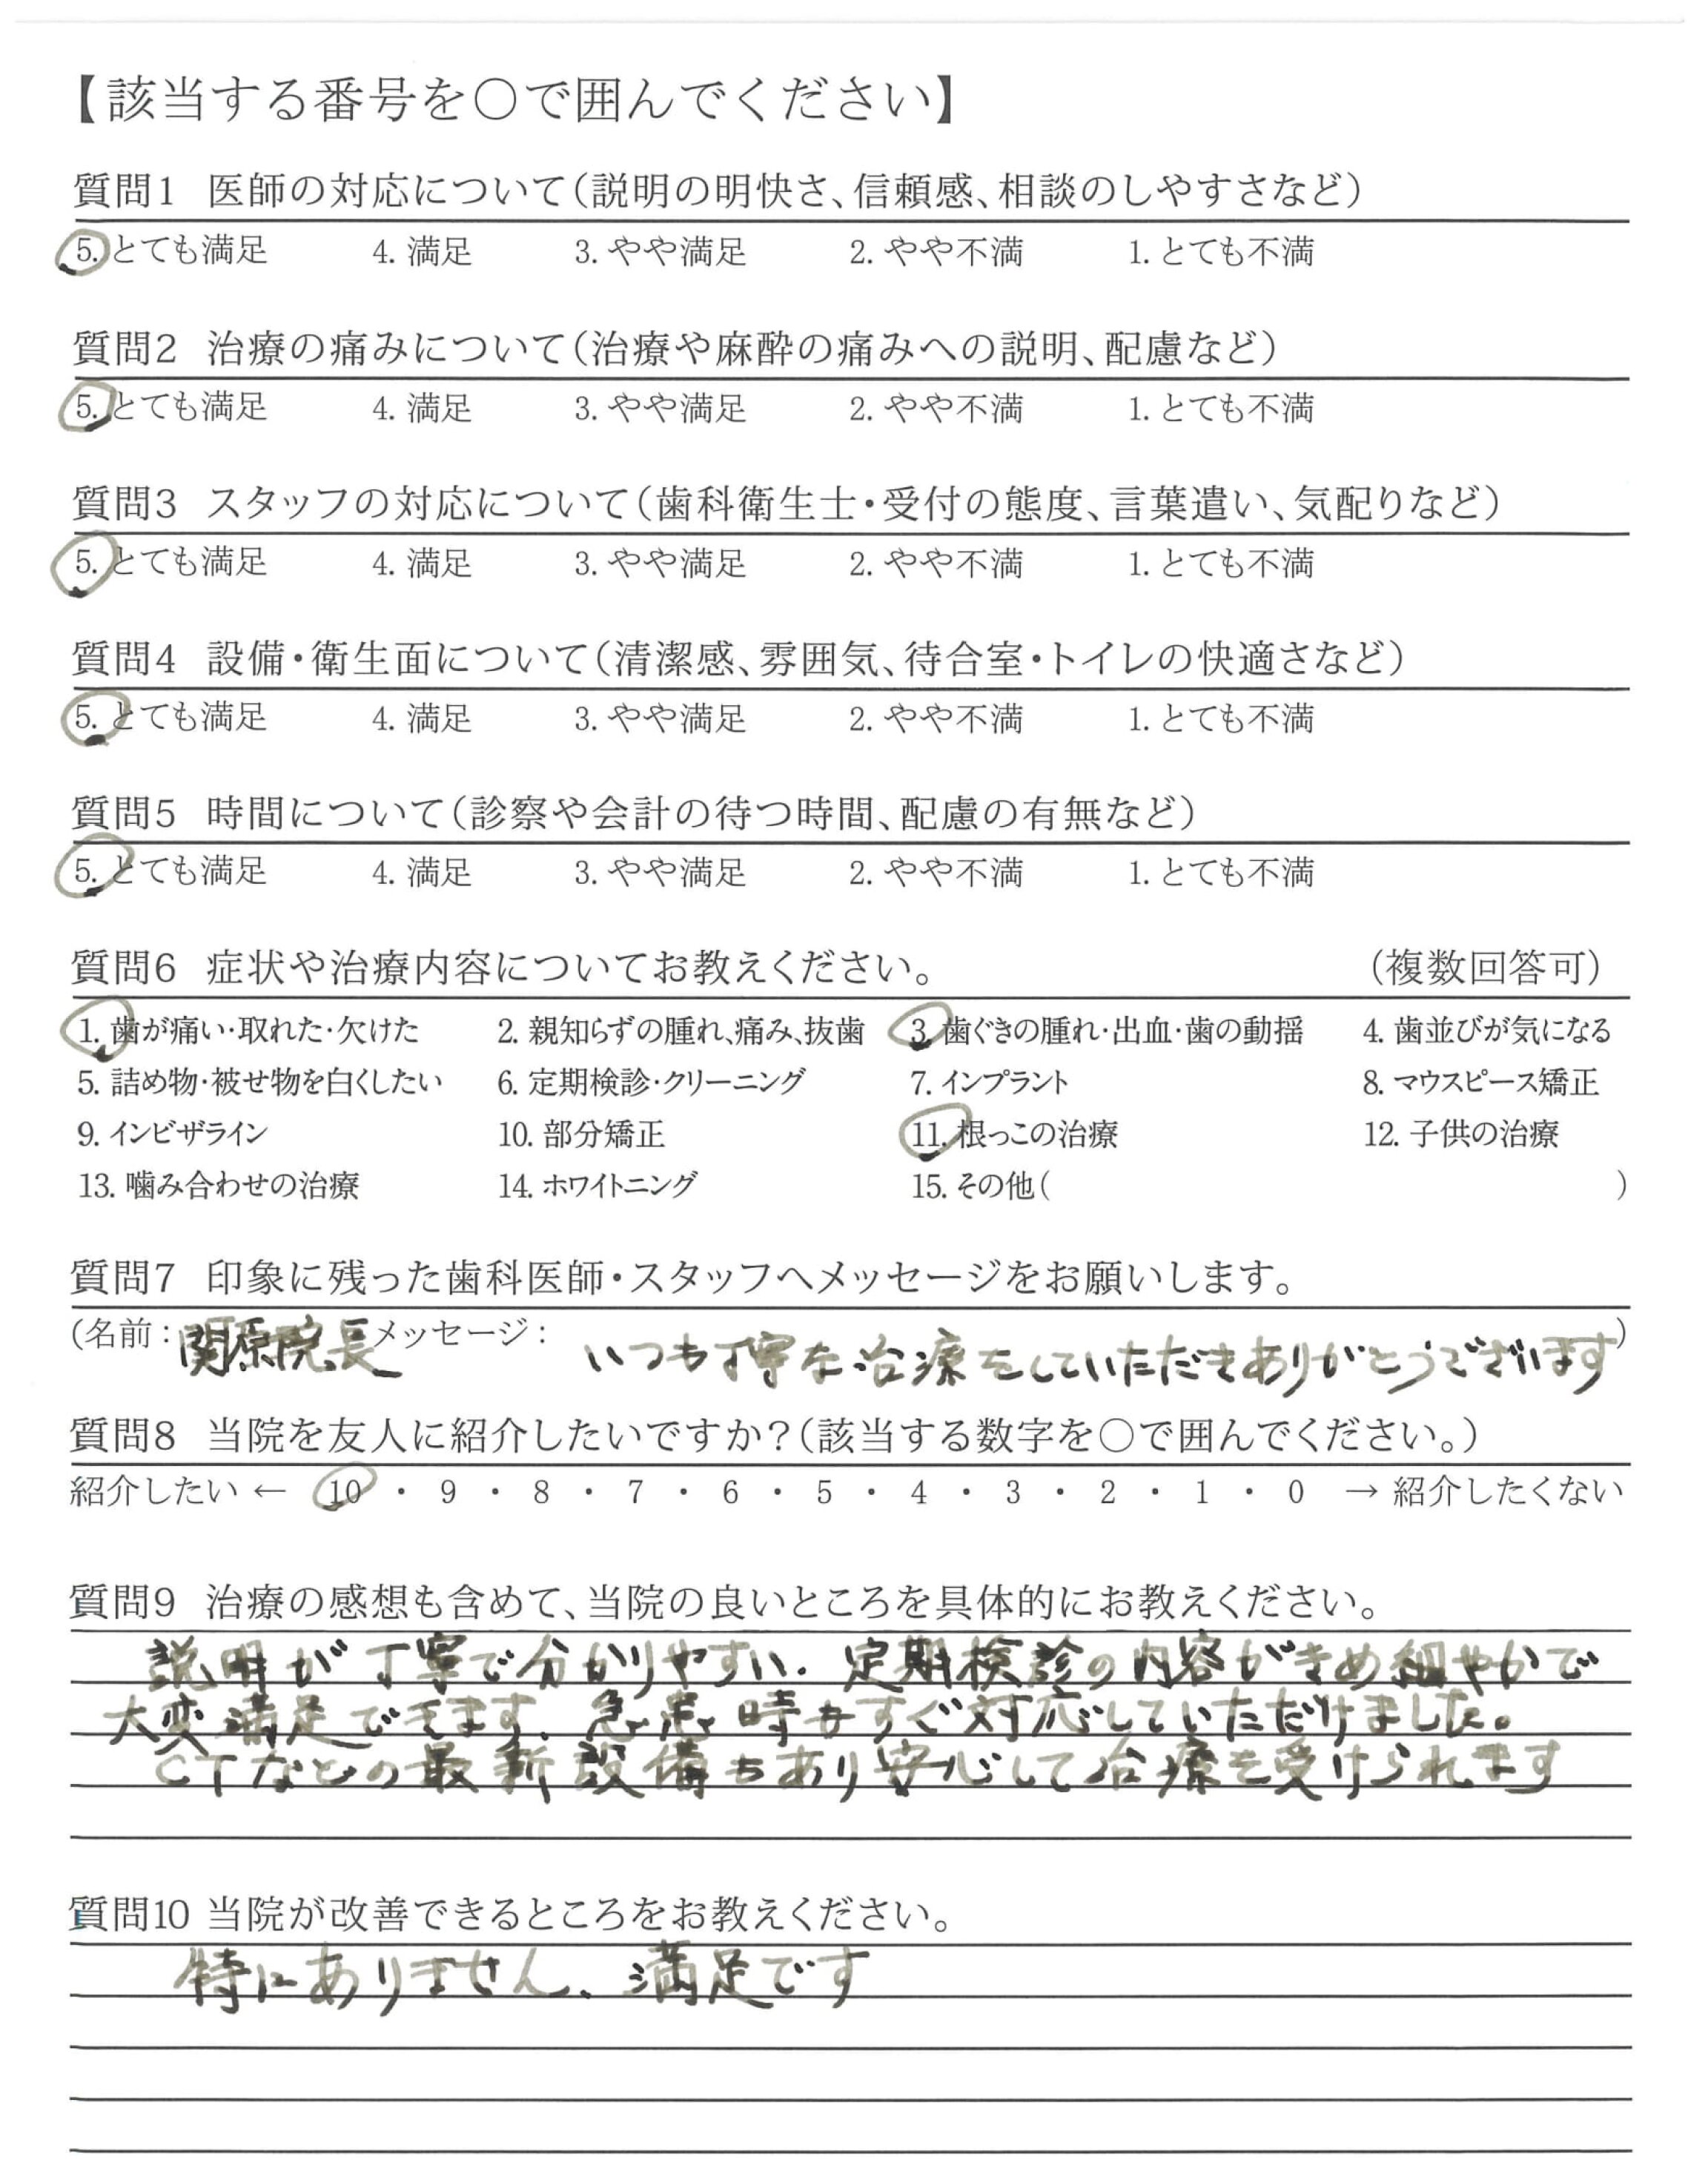 【該当する番号を○で囲んでください】
質問1 医師の対応について（説明の明快さ、信頼感、相談のしやすさなど）
5. とても満足 4. 満足 3. やや満足 2. やや不満 1. とても不満
質問2 治療の痛みについて（治療や麻酔の痛みへの説明、配慮など）
5. とても満足 4. 満足 3. やや満足 2. やや不満 1. とても不満
質問3 スタッフの対応について（歯科衛生士・受付の態度、言葉遣い、気配りなど）
5. とても満足 4. 満足 3. やや満足 2. やや不満 1. とても不満
質問4 設備・衛生面について（清潔感、雰囲気、待合室・トイレの快適さなど）
5. とても満足 4. 満足 3. やや満足 2. やや不満 1. とても不満
質問5 時間について（診察や会計の待つ時間、配慮の有無など）
5. とても満足 4. 満足 3. やや満足 2. やや不満 1. とても不満
質問6 症状や治療内容についてお教えください。 （複数回答可）
1. 歯が痛い・取れた・欠けた 2. 親知らずの腫れ、痛み、抜歯 3. 歯ぐきの腫れ・出血・歯の動揺 4. 歯並びが気になる
5. 詰め物・被せ物を白くしたい 6. 定期検診・クリーニング 7. インプラント 8. マウスピース矯正
9. インビザライン 10. 部分矯正 11. 根っこの治療 12. 子供の治療
13. 噛み合わせの治療 14. ホワイトニング 15. その他（ ）
質問7 印象に残った歯科医師・スタッフへメッセージをお願いします。
（名前：関原院長 メッセージ： いつも丁寧な治療をしていただきありがとうございます）
質問8 当院を友人に紹介したいですか？（該当する数字を○で囲んでください。）
紹介したい ← 10 ・ 9 ・ 8 ・ 7 ・ 6 ・ 5 ・ 4 ・ 3 ・ 2 ・ 1 ・ 0 → 紹介したくない
質問9 治療の感想も含めて、当院の良いところを具体的にお教えください。
説明が丁寧で分かりやすい. 定期検診の内容がきめ細やかで
大変満足できます. 急患時もすぐ対応していただけました。
CTなどの最新設備もあり安心して治療を受けられます
質問10 当院が改善できるところをお教えください。
特にありません. 満足です